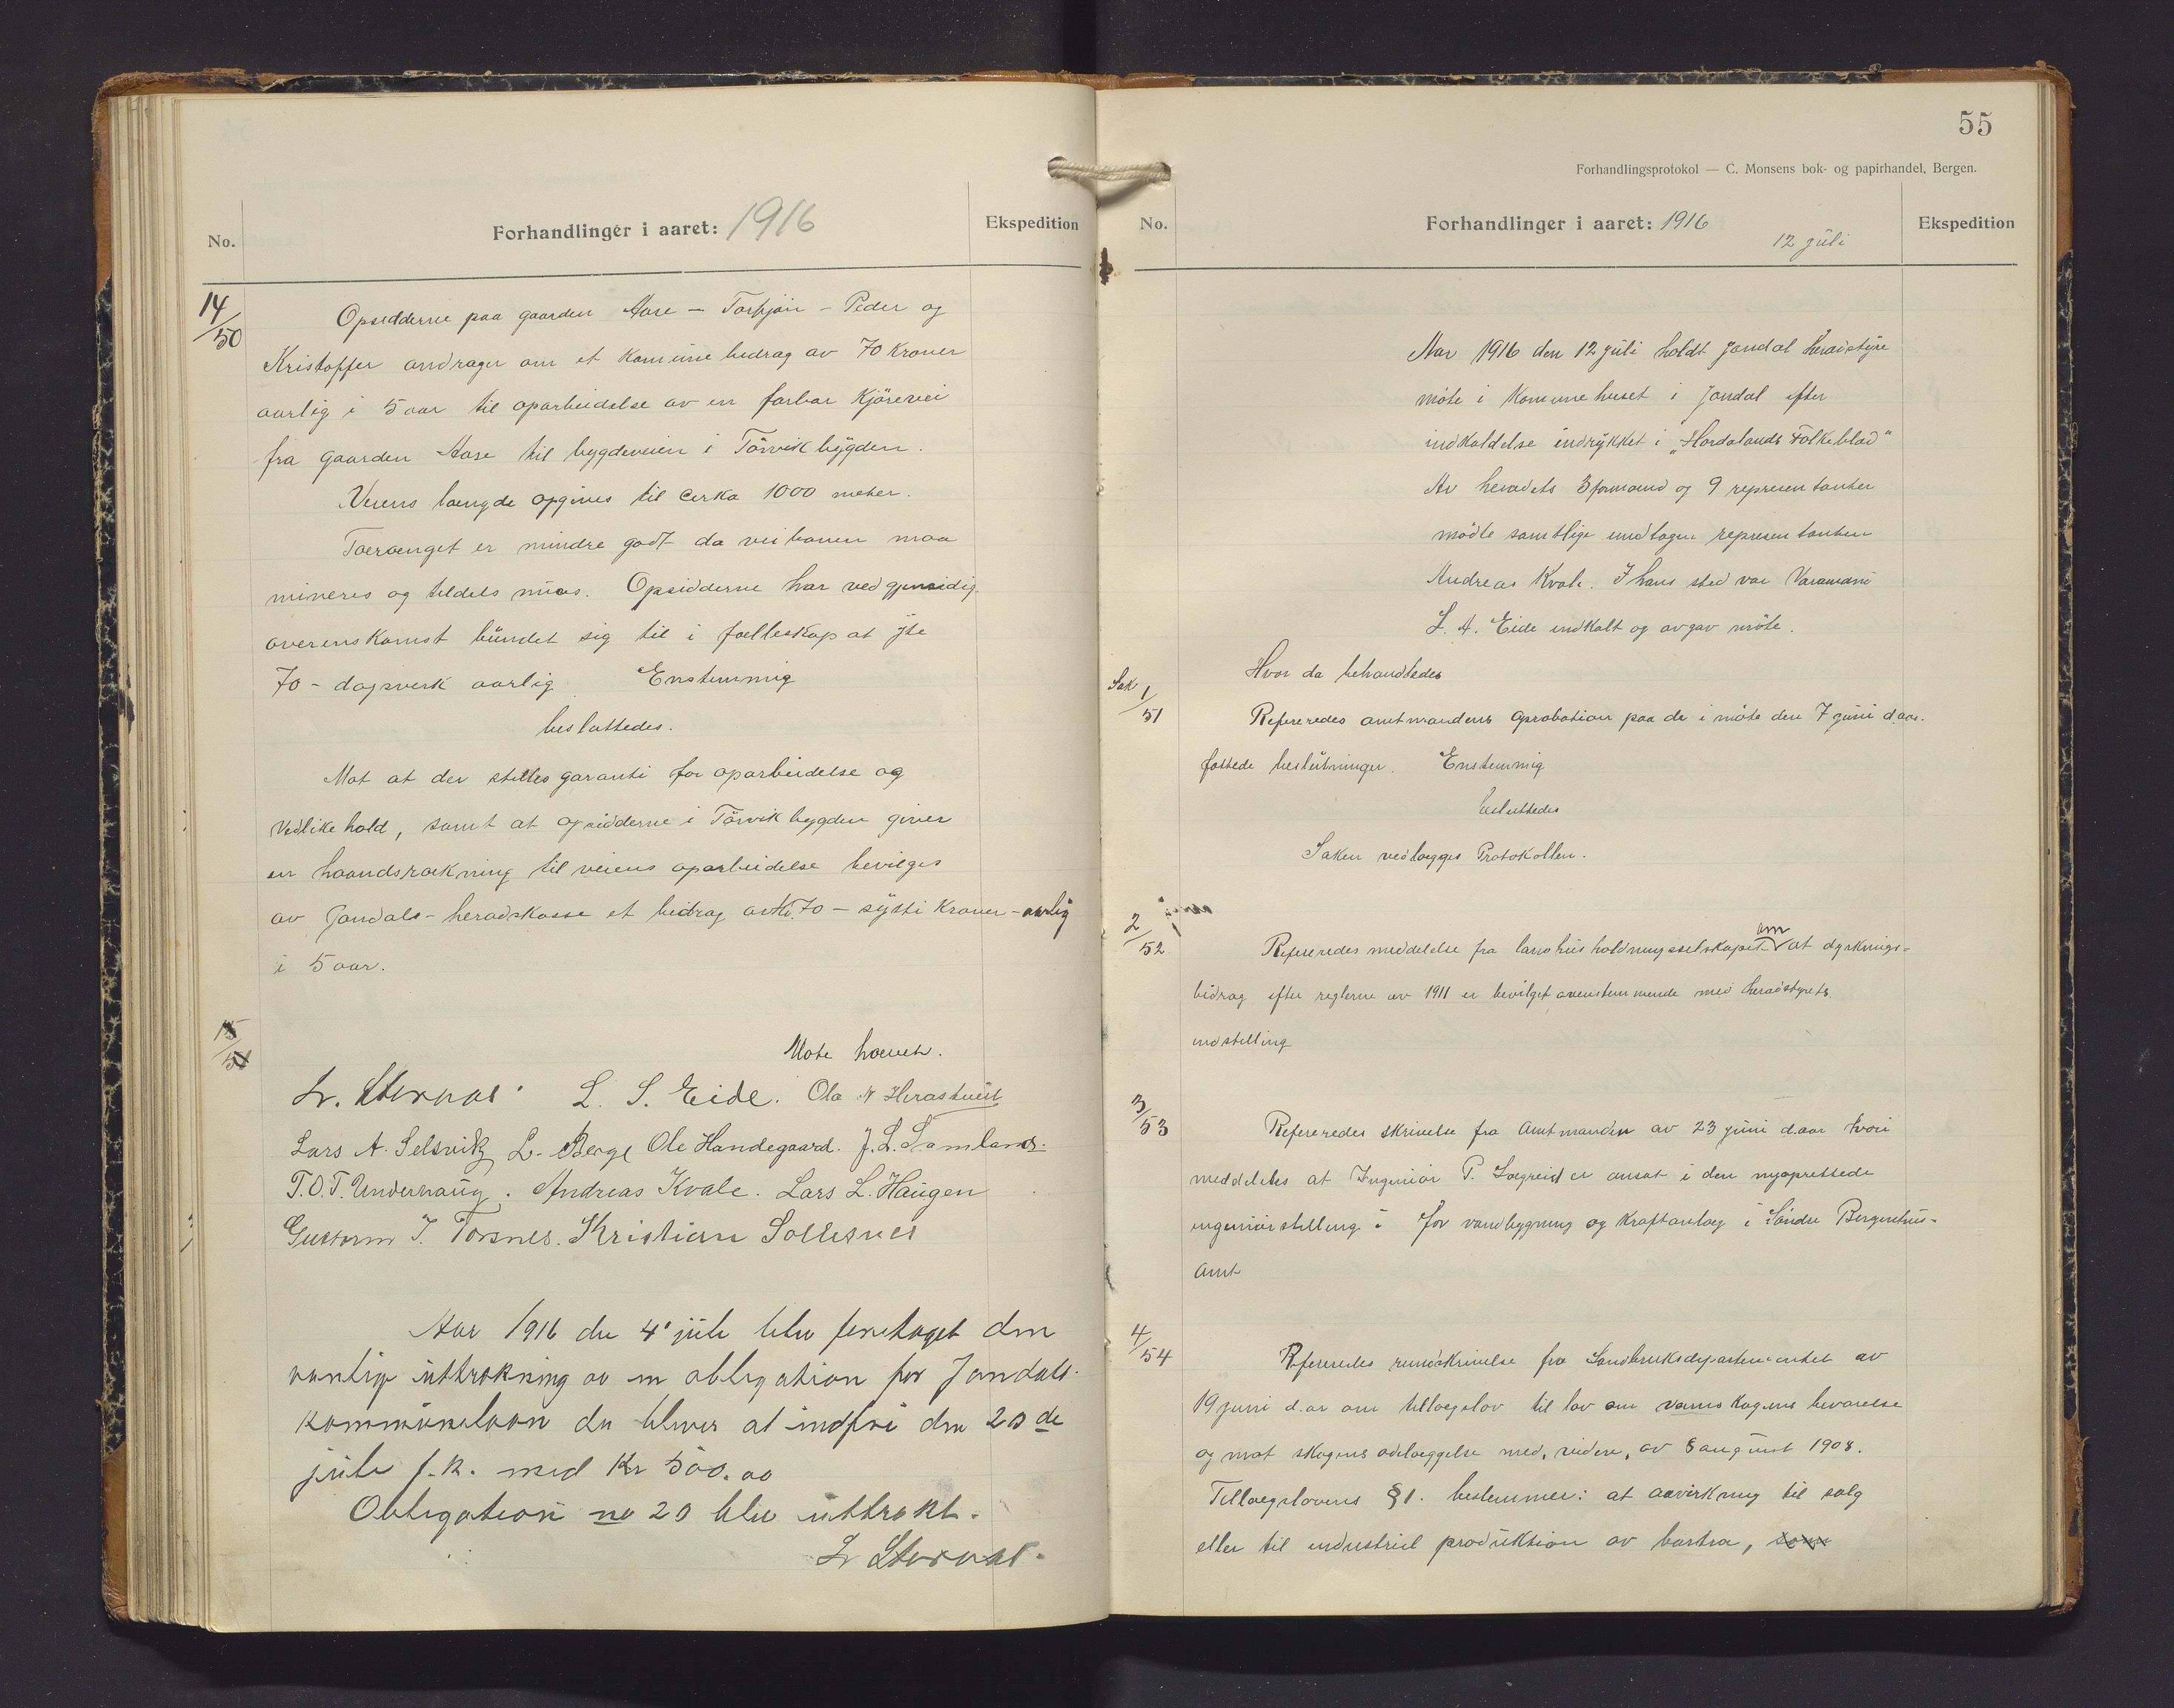 No.
Forhandlinger i aaret: 1916
Ekspedition
14/50
Opsidderne paa gaarden Aase – Torbjön – Peder og
Kristoffer andrager om et komune bedrag av 70 Kroner
aarlig i 5 aar til oparbeidelse av en farbar Kjörevei
fra gaarden Aase til bygdeveien i Törvikbygden.
Veiens længde opgives til cerka 1000 meter.
Tærænget er mindre godt da veibanen maa
mineres og tildels mures. Opsidderne har ved gjensidig
overenskomst bundet sig til i fælleskap at yte
70 – dagsverk aarlig Enstemmig
besluttedes.
Mot at der stilles garanti for oparbeidelse og
vedlikehold, samt at opsidderne i Törvikbygden giver
en haandsrækning til veiens oparbeidelse bevilges
av Jondals – heradskasse et bidrag av Kr. 70 – sÿtti Kroner – aarlig
i 5 aar.
15/51
Möte hævet.
Lr. Stornas. L. S. Eide. Ola N Herastveit
Lars A. Selsvik L. Berge Ole Handegaard. J. L. Samland.
T. O. T. Underhaug. Andreas Kvale. Lars L. Haugen
Guttorm J. Torsnes. Kristian Solesnes
Aar 1916 den 4' juli blev foretaget den
vanlige uttrækning av en obligation for Jondals
kommunelaan der bliver at indfri den 20de
juli f.k. med Kr 500.00
Obligation no 20 blev uttrukt.
Lr Stornas.
55
Forhandlingsprotokol — C. Monsens bok- og papirhandel, Bergen.
No.
Forhandlinger i aaret: 1916
12 juli
Ekspedition
Aar 1916 den 12 juli holdt Jondal Heradstyre
möte i Komunehuset i Jondal efter
indkaldelse indrykket i „Hordalands Folkeblad"
Av heradets 3 formænd og 9 representanter
mödte samtlige undtagen representanten
Andreas Kvale. I hans sted var Varamand
L. A. Eide indkalt og avgav möte.
Hvor da behandledes
Sak 1/51
Refereredes amtmandens aprobation paa de i möte den 7 juni d. aar.
fattede beslutninger. Enstemmig
besluttedes
Saken vedlægges Protokollen.
2/52
Refereredes meddelelse fra landhusholdningsselskapet om at dyrknings-
bidrag efter reglerne av 1911 er bevilget overenstemmende med heradstyrets
indstilling
3/53
Refereredes skrivelse fra Amtmanden av 23 juni d.aar hvori
meddeleles at Ingeniör P. Lægreid er ansat i den nyoprettede
ingeniörstilling i for vandbygning og kraftanlæg i Söndre Bergenhus-
Amt
4/54
Refereredes rundskrivelse fra Landbruksdepartementet av
19 juni d.ar om tillægslov til lov om værnskogens bevarelse
og mot skogens ödelæggelse med, videre, av 8 august 1908.
Tillægslovens § 1. bestemmer: at aavirkning til salg
eller til industriel produktion av bartrær, som